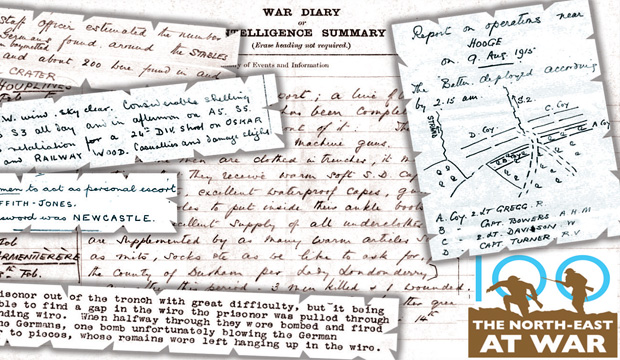 Staff Officer estimated the number
Germans found around the STABLES
bayoneted
and about 200 were found in and
CRATER
HOUPLINES
WAR DIARY
or
INTELLIGENCE SUMMARY
(Erase heading not required.)
of Events and Information
W. wind. Sky clear. Considerable shelling
33 all day and in afternoon on A5. 35.
retaliation for a 24th DIV. shoot on OSKAR
and RAILWAY WOOD. Casualties and damage slight
men to act as personal escort
FFITH-JONES.
sword was NEWCASTLE.
; a live
has been complet
out of it. The
machine guns.
men are clothed in trenches, it
they receive warm soft S.D. Cap
excellent waterproof Capes, gum
to put inside thin ankle boots
excellent supply of all undercloth
are supplemented by as many warm articles
as mits, socks etc as we like to ask for
the County of Durham per Lady Londonderry
this period 3 men killed & 1 wounded.
14th
Tob.
ARMENTIERÈRE
Tob.
isonor out of the tronch with great difficulty, but it being
ble to find a gap in the wire the prisonor was pulled through
nding wiro. When halfway through they wore bombed and firod
ho Gormans, one bomb unfortunatoly blowing the German
r to pioces, whose remains were left hanging up in the wiro.
Report on operations near
HOOGE
on 9. Aug. 1915.
The Battn. deployed according
by 2.15 am.
S.2.
D. Coy
A Coy
A. Coy 2. Lt GREGG. R
B " CAPT. BOWERS A.H.M
C " 2. Lt. DAVISON. W
D " CAPT. TURNER. R.V
100
THE NORTH-EAST
AT WAR